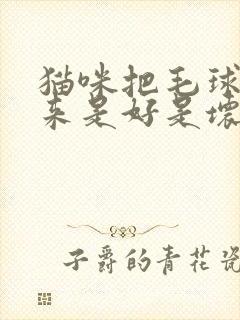 猫咪把毛球
来是好是壞
子爵的青花瓷